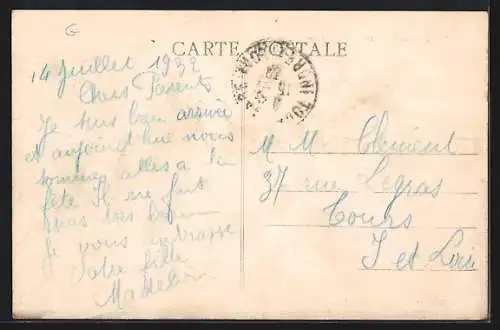 G
CARTE POSTALE
14 Juillet 1932
Chers Parents
Je suis bien arrivée
et aujourd'hui nous
sommes alles a la
fête Il ne fait
pas très
Je vous embrasse
Votre fille
Madelein
M M. Clement
37 rue Legras
Tours
I et Loire